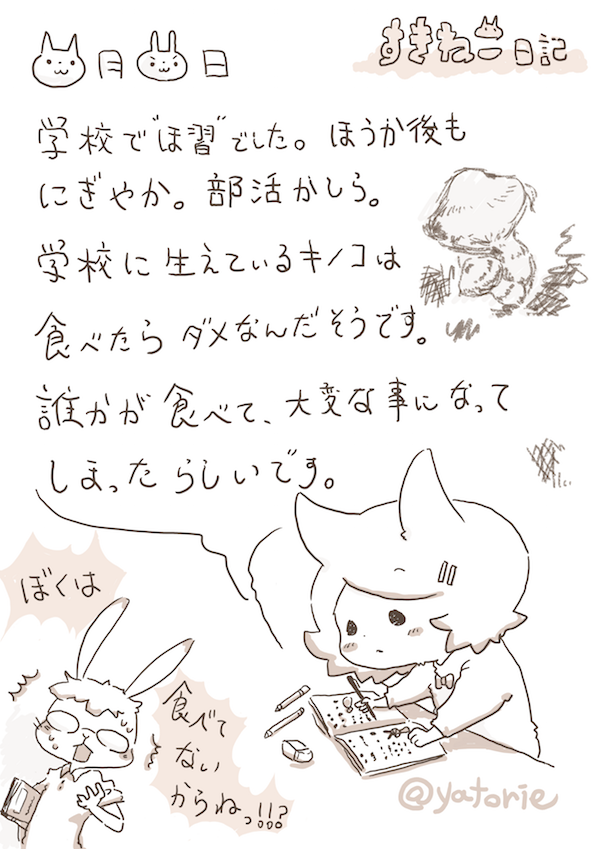 月 日
すきねこ日記
学校で"ほ習"でした。ほうか後も
にぎやか。部活かしら。
学校に生えているキノコは
食べたらダメなんだそうです。
誰かが食べて、大変な事になって
しまったらしいです。
ぼくは
食べて
ない
からねっ!!!?
@yatorie